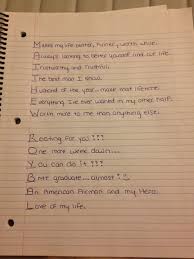 Makes my life better, funner, worth while.
Always looking to better yourself and our life.
Trustworthy and truthful.
The best man I know.
Husband of the year... make that lifetime.
Everything I've ever wanted in my other half.
Worth more to me than anything else.
Rooting for you!!!
One more week down...
You can do it!!!
BMT graduate... almost!
An American Airman and my Hero.
Love of my life.